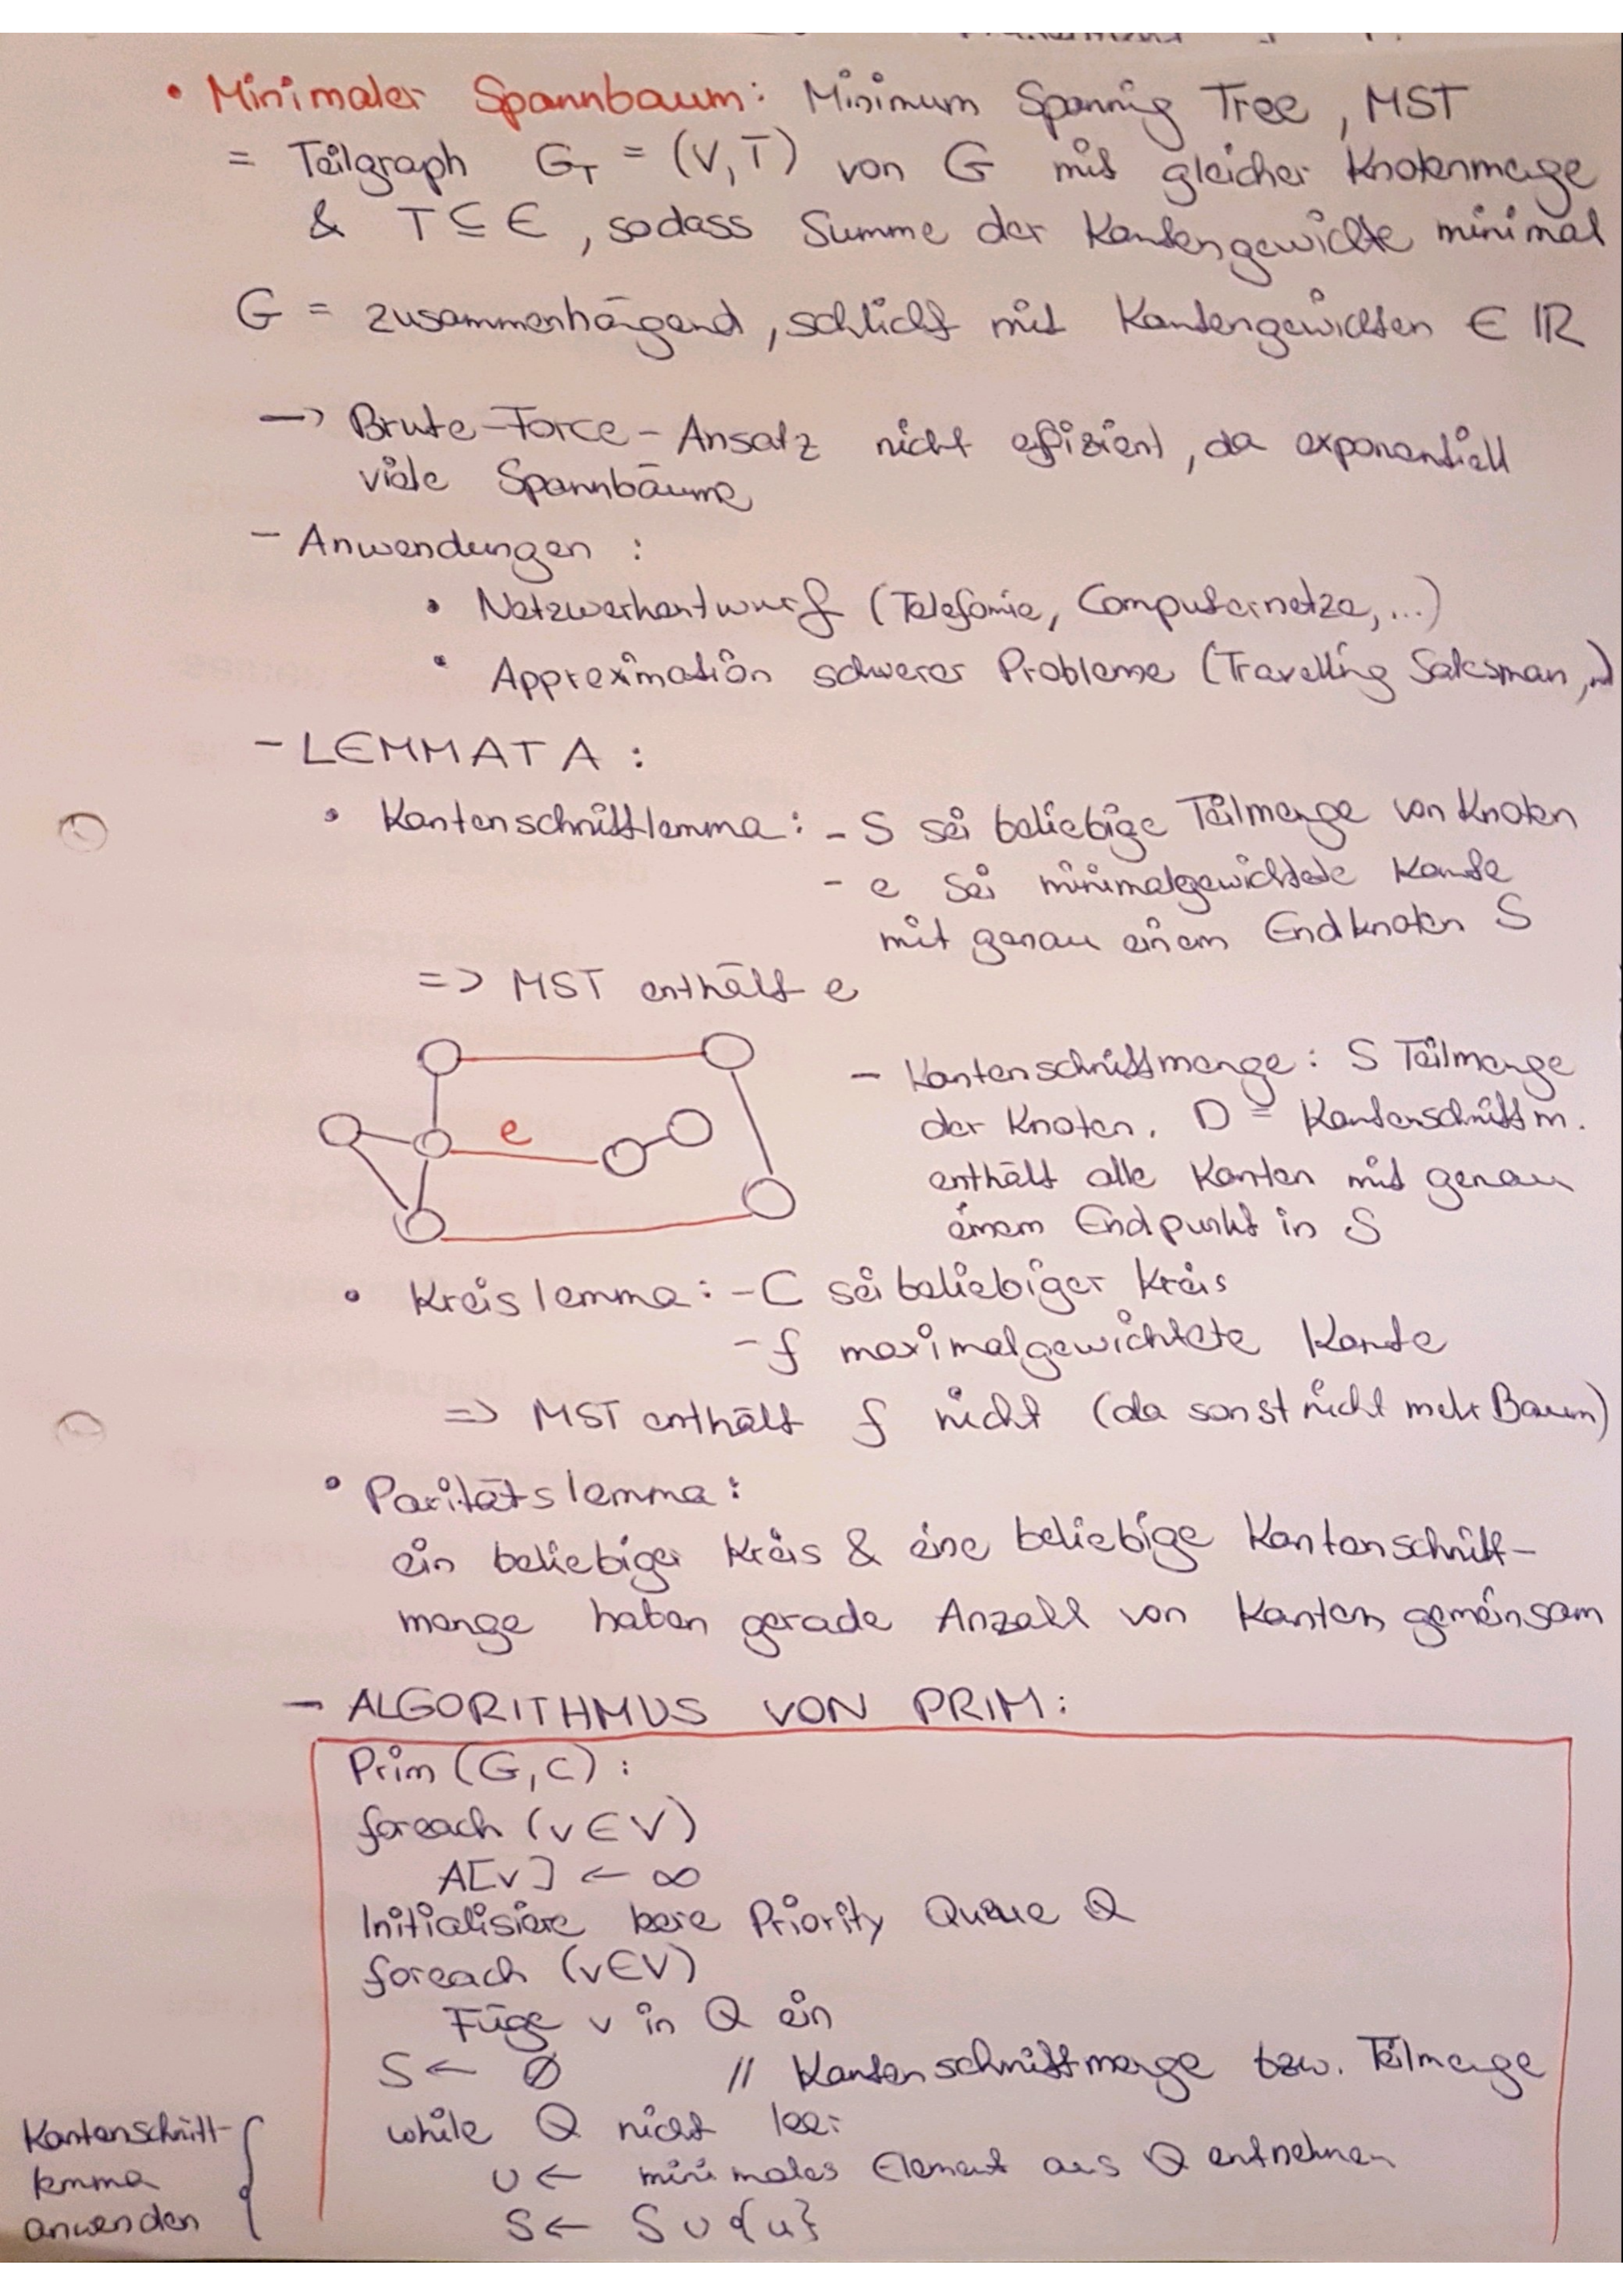 • Minimaler Spannbaum: Minimum Spannig Tree, MST
= Teilgraph G_T = (V, T) von G mit gleicher Knotenmenge
& T ⊆ E, sodass Summe der Kantengewichte minimal
G = zusammenhängend, schlicht mit Kantengewichten ∈ ℝ
→ Brute-Force-Ansatz nicht effizient, da exponentiell
viele Spannbäume
- Anwendungen:
• Netzwerkentwurf (Telefonie, Computernetze, ...)
• Approximation schwerer Probleme (Travelling Salesman, ...)
- LEMMATA:
• Kantenschnittlemma: - S sei beliebige Teilmenge von Knoten
- e sei minimalgewichtete Kante
mit genau einem Endknoten S
=> MST enthält e
e
- Kantenschnittmenge: S Teilmenge
der Knoten. D = Kantenschnittm.
enthält alle Kanten mit genau
einem Endpunkt in S
• Kreislemma: - C sei beliebiger Kreis
- f maximalgewichtete Kante
=> MST enthält f nicht (da sonst nicht mehr Baum)
• Paritätslemma:
ein beliebiger Kreis & eine beliebige Kantenschnitt-
menge haben gerade Anzahl von Kanten gemeinsam
- ALGORITHMUS VON PRIM:
Prim (G, C):
foreach (v ∈ V)
A[v] ← ∞
Initialisiere leere Priority Queue Q
foreach (v ∈ V)
Füge v in Q ein
S ← ∅ // Kantenschnittmenge bzw. Teilmenge
while Q nicht leer
u ← minimales Element aus Q entnehmen
S ← S ∪ {u}
Kantenschnitt-
lemma
anwenden